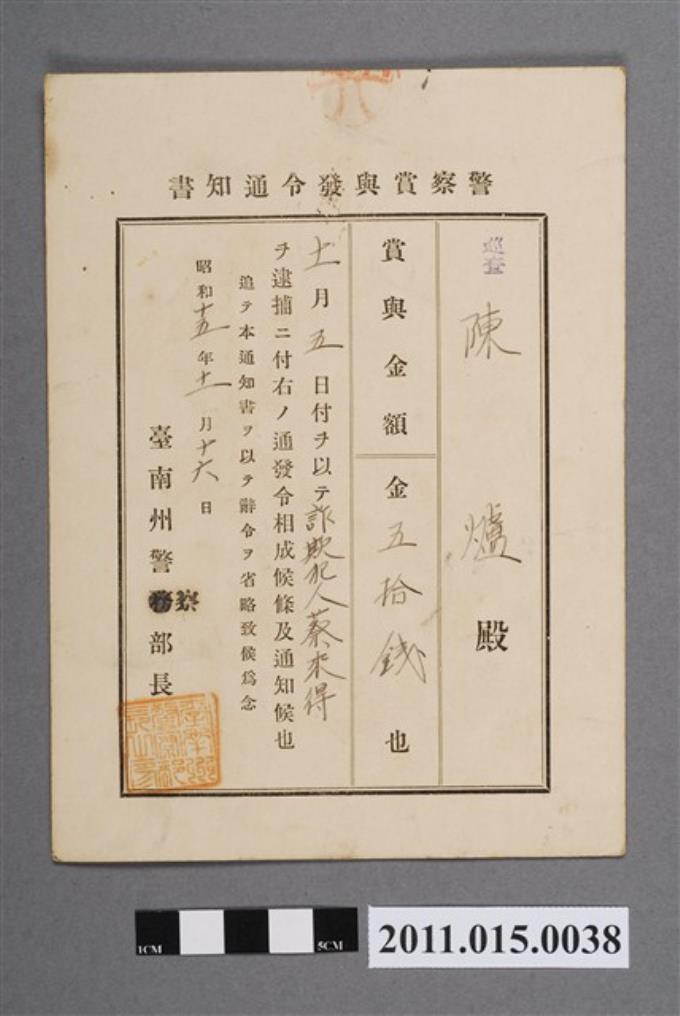 警察賞與發令通知書
巡查
陳爐殿
賞與金額
金五拾錢也
十一月五日付ヲ以テ詐欺犯人蔡來得
ヲ逮捕ニ付右ノ通發令相成候條及通知候也
追テ本通知書ヲ以テ辭令ヲ省略致候為念
昭和十五年十一月十六日
臺南州警察部長
1CM
5CM
2011.015.0038